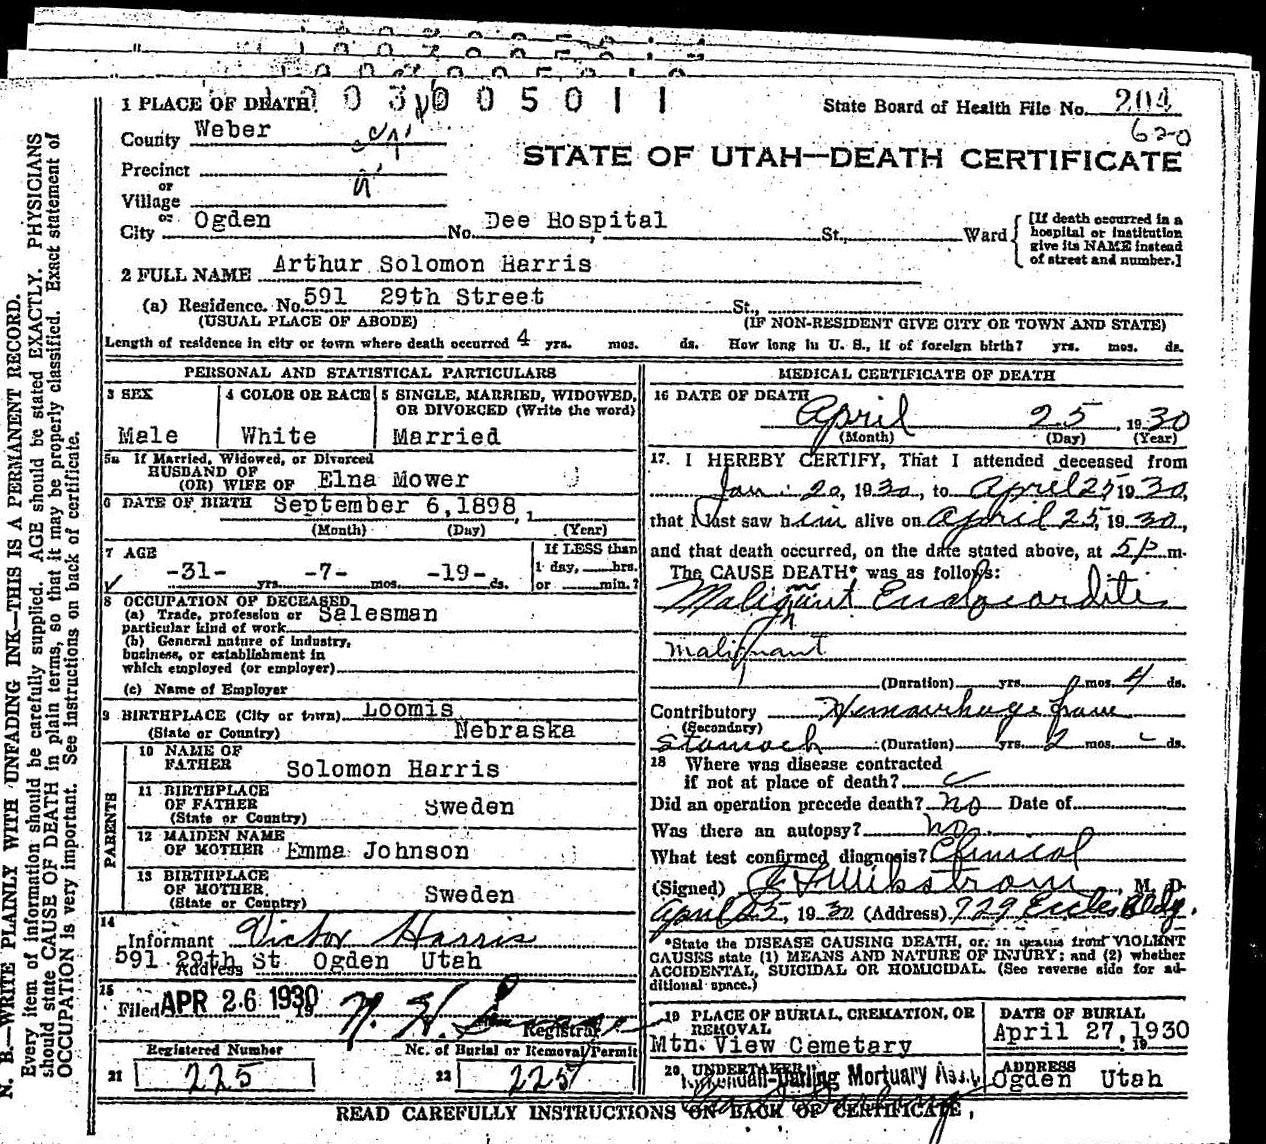 1 PLACE OF DEATH 1003005011
State Board of Health File No. 204
620
County Weber
STATE OF UTAH—DEATH CERTIFICATE
Precinct
or
Village
or
City Ogden No. Dee Hospital St., Ward
[If death occurred in a
hospital or institution
give its NAME instead
of street and number.]
2 FULL NAME Arthur Solomon Harris
(a) Residence. No. 591 29th Street St.,
(USUAL PLACE OF ABODE) (IF NON-RESIDENT GIVE CITY OR TOWN AND STATE)
Length of residence in city or town where death occurred 4 yrs. mos. ds. How long in U. S., if of foreign birth? yrs. mos. ds.
N. B.—WRITE PLAINLY WITH UNFADING INK—THIS IS A PERMANENT RECORD.
Every item of information should be carefully supplied. AGE should be stated EXACTLY. PHYSICIANS
should state CAUSE OF DEATH in plain terms, so that it may be properly classified. Exact statement of
OCCUPATION is very important. See instructions on back of certificate.
PERSONAL AND STATISTICAL PARTICULARS
3 SEX
Male
4 COLOR OR RACE
White
5 SINGLE, MARRIED, WIDOWED,
OR DIVORCED (Write the word)
Married
5a If Married, Widowed, or Divorced
HUSBAND OF
(OR) WIFE OF Elna Mower
6 DATE OF BIRTH September 6,1898,
(Month) (Day) (Year)
7 AGE
-31- yrs. -7- mos. -19- ds.
If LESS than
1 day, hrs.
or min.?
8 OCCUPATION OF DECEASED
(a) Trade, profession or Salesman
particular kind of work
(b) General nature of industry,
business, or establishment in
which employed (or employer)
(c) Name of Employer
9 BIRTHPLACE (City or town) Loomis
(State or Country) Nebraska
PARENTS
10 NAME OF
FATHER Solomon Harris
11 BIRTHPLACE
OF FATHER Sweden
(State or Country)
12 MAIDEN NAME
OF MOTHER Emma Johnson
13 BIRTHPLACE
OF MOTHER Sweden
(State or Country)
14
Informant Victor Harris
591 29th St Ogden Utah
Address
15
Filed APR 26 1930 19
N. H.
Registrar
Registered Number No. of Burial or Removal Permit
21 225 22 225
MEDICAL CERTIFICATE OF DEATH
16 DATE OF DEATH
April 25, 1930
(Month) (Day) (Year)
17. I HEREBY CERTIFY, That I attended deceased from
Jan. 20, 1930, to April 25 1930,
that I last saw him alive on April 25, 1930,
and that death occurred, on the date stated above, at 5 P m.
The CAUSE DEATH* was as follows:
Malignant Endocarditis
malignant
(Duration) yrs. mos. 4 ds.
Contributory Hemorrhage from
(Secondary)
Stomach (Duration) yrs. 2 mos. ds.
18 Where was disease contracted
if not at place of death?
Did an operation precede death? no Date of
Was there an autopsy? no.
What test confirmed diagnosis? Clinical
(Signed) Wikstrom, M. D.
April 25, 1930 (Address) 729 Eccles Bldg.
*State the DISEASE CAUSING DEATH, or, in deaths from VIOLENT
CAUSES state (1) MEANS AND NATURE OF INJURY; and (2) whether
ACCIDENTAL, SUICIDAL OR HOMICIDAL. (See reverse side for ad-
ditional space.)
19 PLACE OF BURIAL, CREMATION, OR
REMOVAL
Mtn. View Cemetary
DATE OF BURIAL
April 27, 1930
19
20 UNDERTAKER
Mortuary
ADDRESS
Ogden Utah
READ CAREFULLY INSTRUCTIONS ON BACK OF CERTIFICATE.